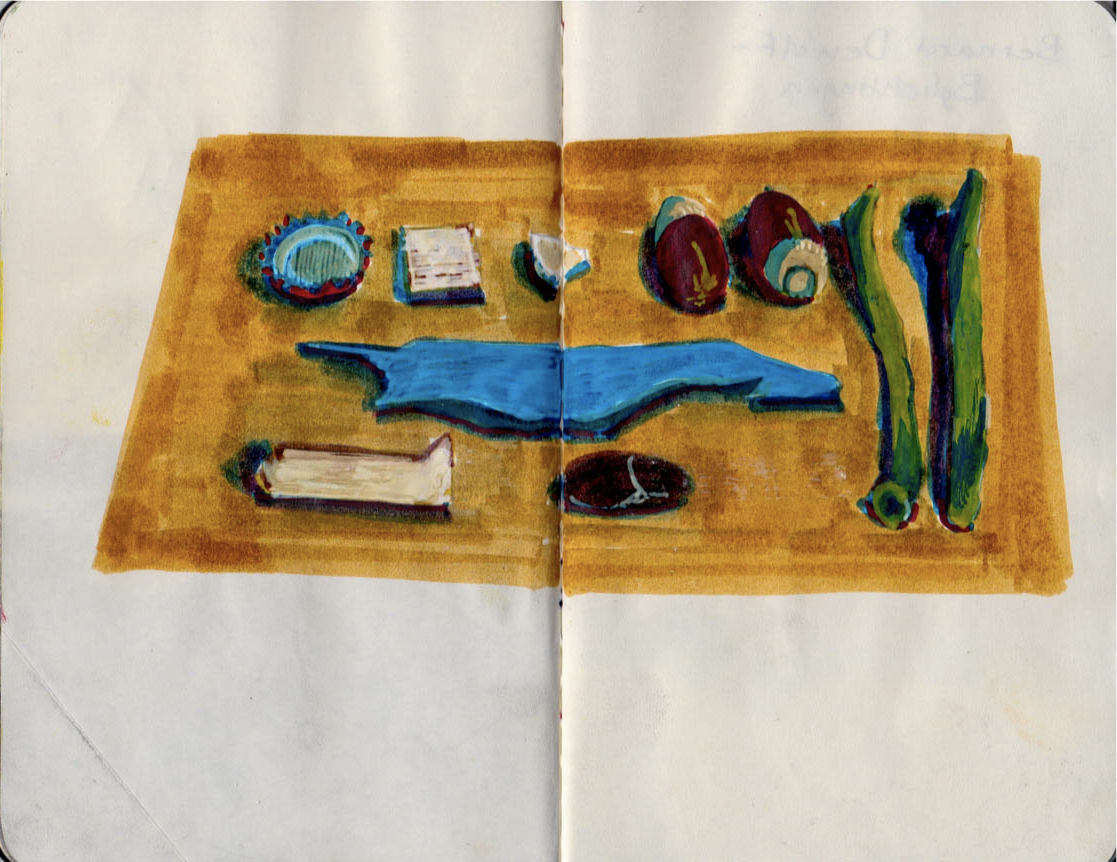 Bernard Dewulf -
Bijlichtingen